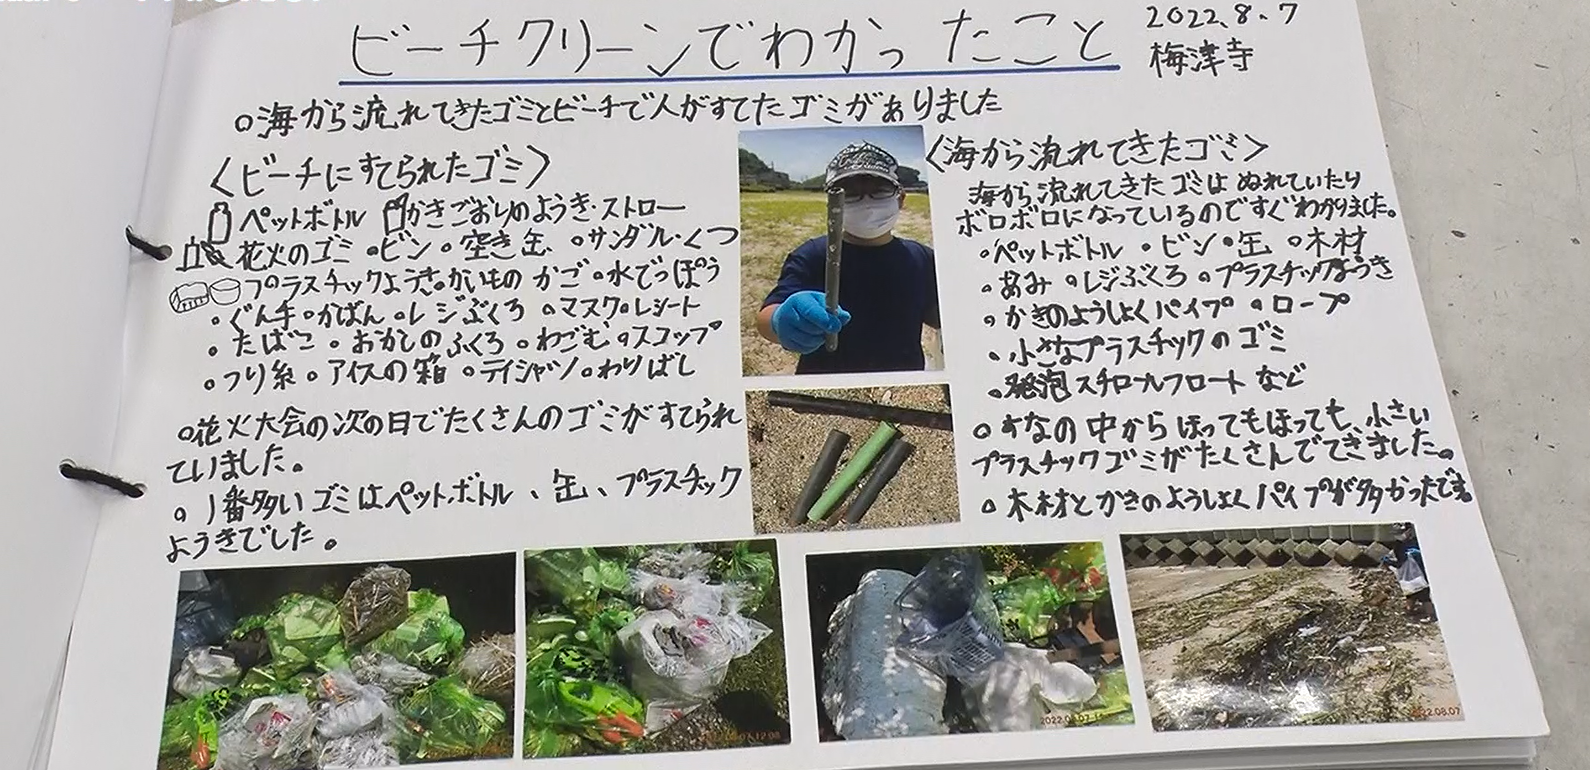 ビーチクリーンでわかったこと
2022.8.7
梅津寺
○海から流れてきたゴミとビーチで人がすてたゴミがありました
〈ビーチにすてられたゴミ〉
ペットボトル かきごおりのようき・ストロー
花火のゴミ ○ビン ○空き缶 ○サンダル・くつ
プラスチックようき○かいものかご○水でっぽう
○ぐん手○かばん○レジぶくろ ○マスク○レシート
○たばこ ○おかしのふくろ ○わごむ ○スコップ
○つり糸 ○アイスの箱 ○ティシャツ ○わりばし
○花火大会の次の日でたくさんのゴミがすてられ
ていました。
○1番多いゴミはペットボトル、缶、プラスチック
ようきでした。
〈海から流れてきたゴミ〉
海から流れてきたゴミはぬれていたり
ボロボロになっているのですぐわかりました。
○ペットボトル ○ビン○缶 ○木材
○あみ ○レジぶくろ ○プラスチックようき
○かきのようしょくパイプ ○ロープ
○小さなプラスチックのゴミ
○発泡スチロールフロートなど
○すなの中からほってもほっても、小さい
プラスチックゴミがたくさんでてきました。
○木材とかきのようしょくパイプが多かったです
2022.08.07
2022.08.07